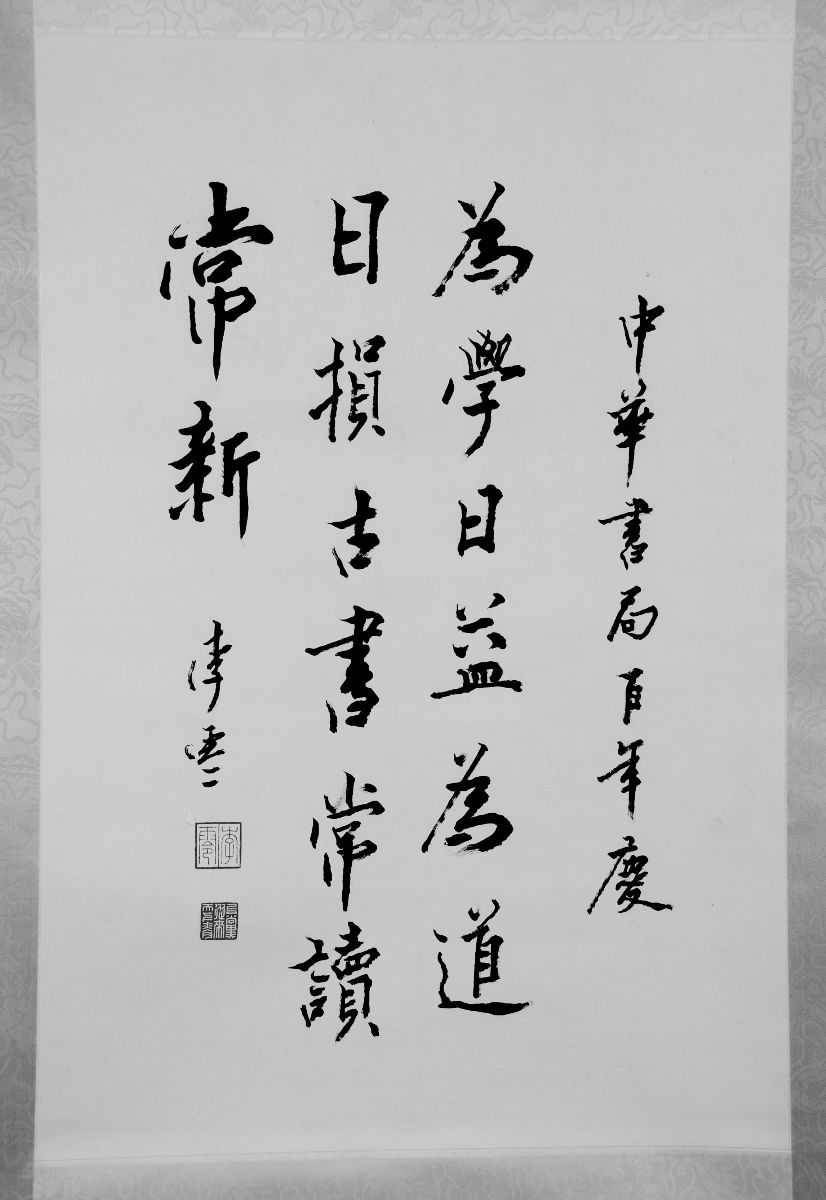 中華書局百年慶
為學日益為道
日損古書常讀
常新
李零
李零